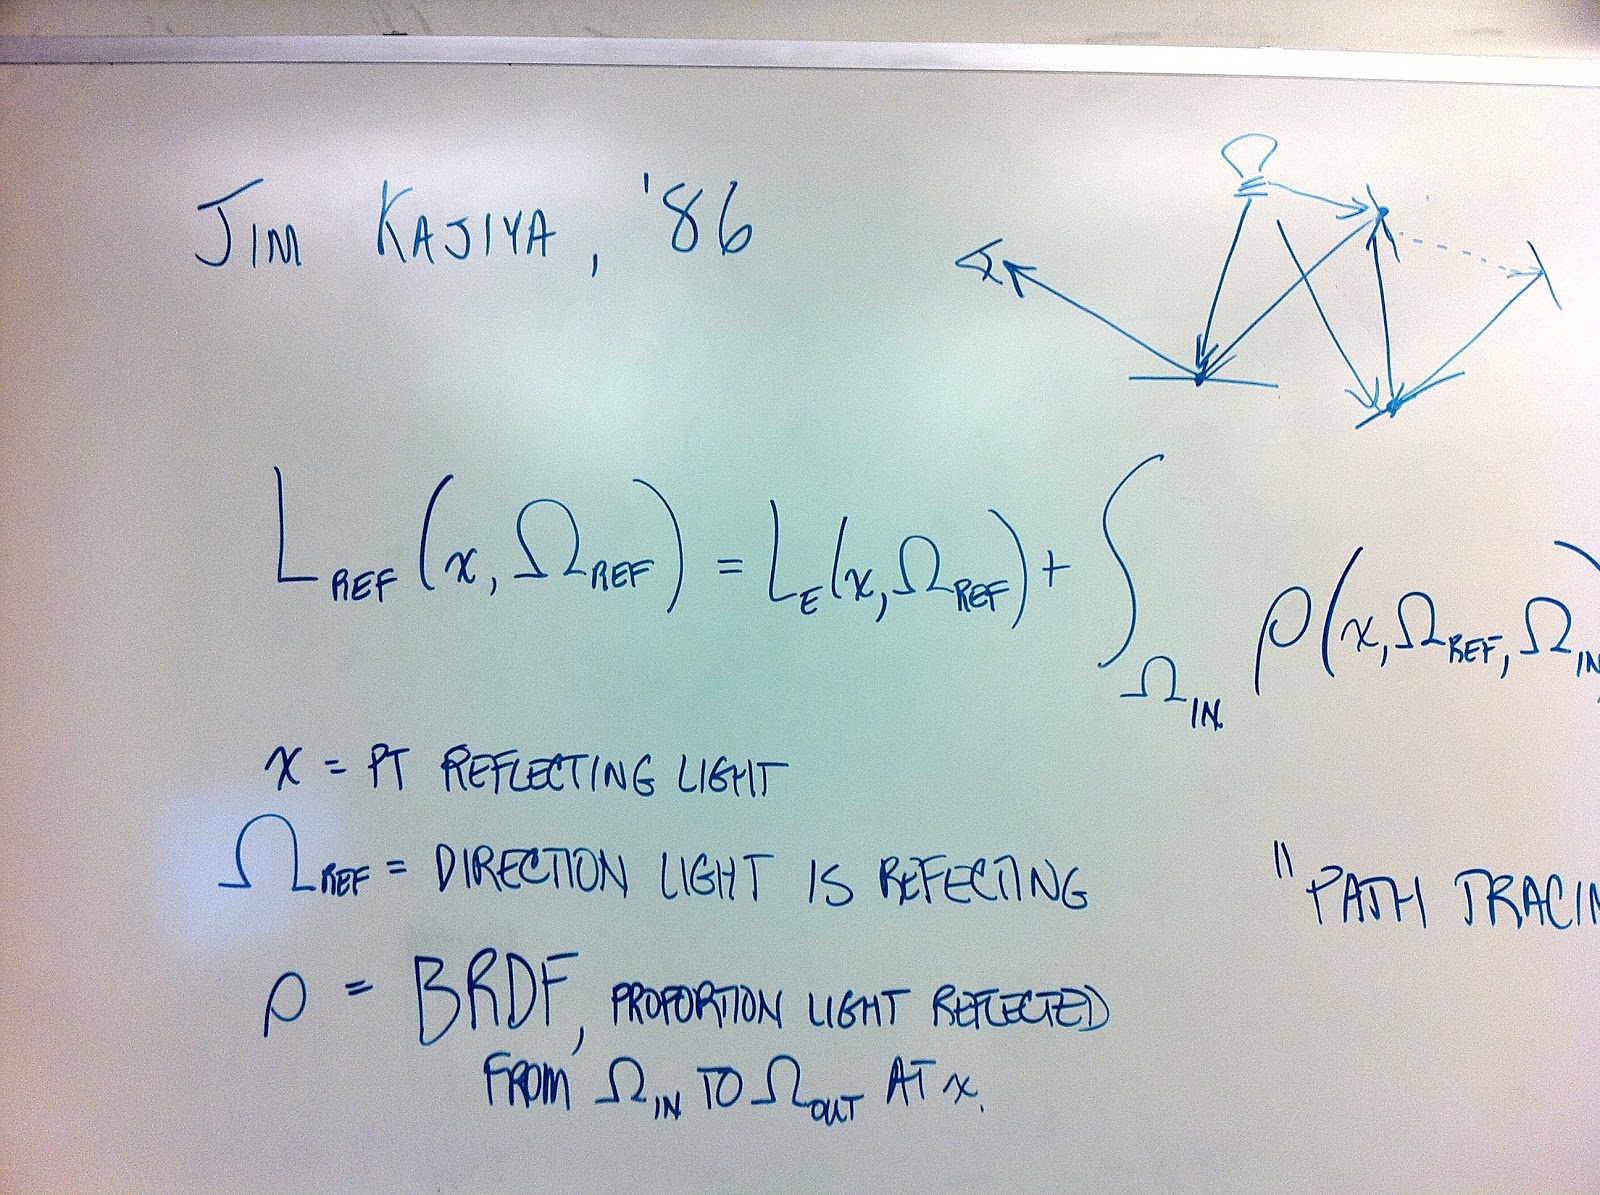 JIM KAJIYA, '86
L_REF (x, Ω_REF) = L_E (x, Ω_REF) + ∫_Ω_IN. ρ(x, Ω_REF, Ω_IN)
x = PT REFLECTING LIGHT
Ω_REF = DIRECTION LIGHT IS REFECTING
"PATH TRACIN
ρ = BRDF, PROPORTION LIGHT REFLECTED
FROM Ω_IN TO Ω_OUT AT x.